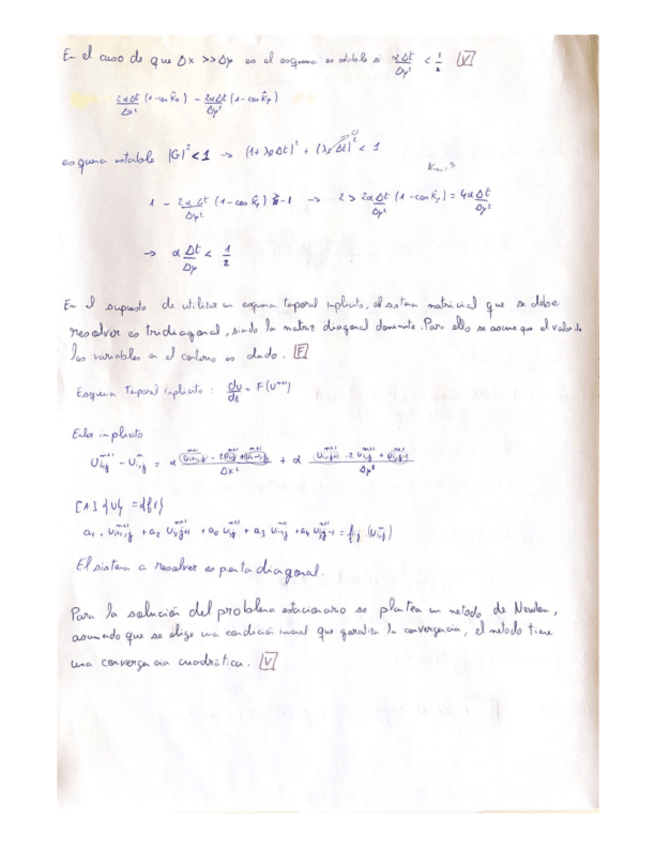 En el caso de que Δx >> Δy es el esquema estable si αΔt/Δy² < 1/2 [V]
2αΔt/Δx² (1-cos k̂x) - 2αΔt/Δy² (1-cos k̂y)
esquema estable |G|² < 1 → (1+λRΔt)² + (λIΔt)² < 1
1 - 2αΔt/Δy² (1-cos k̂y) > -1 → 2 > 2αΔt/Δy² (1-cos k̂y) = 4αΔt/Δy²
→ αΔt/Δy² < 1/2
En el supuesto de utilizar un esquema temporal implícito, el sistema matricial que se debe
resolver es tridiagonal, siendo la matriz diagonal dominante. Para ello se asume que el valor de
las variables en el contorno es dado. [F]
Esquema Temporal implícito : du/dt = F(Uⁿ⁺¹)
Euler implícito
Uᵢ,ⱼⁿ⁺¹ - Uᵢ,ⱼⁿ = α (Uᵢ₊₁,ⱼⁿ⁺¹ - 2Uᵢ,ⱼⁿ⁺¹ + Uᵢ₋₁,ⱼⁿ⁺¹)/Δx² + α (Uᵢ,ⱼ₊₁ⁿ⁺¹ - 2Uᵢ,ⱼⁿ⁺¹ + Uᵢ,ⱼ₋₁ⁿ⁺¹)/Δy²
[A] {U} = {f}
El sistema a resolver es pentadiagonal.
Para la solución del problema estacionario se plantea un metodo de Newton,
asumiendo que se elige una condición inicial que garantiza la convergencia, el metodo tiene
una convergencia cuadrática. [V]